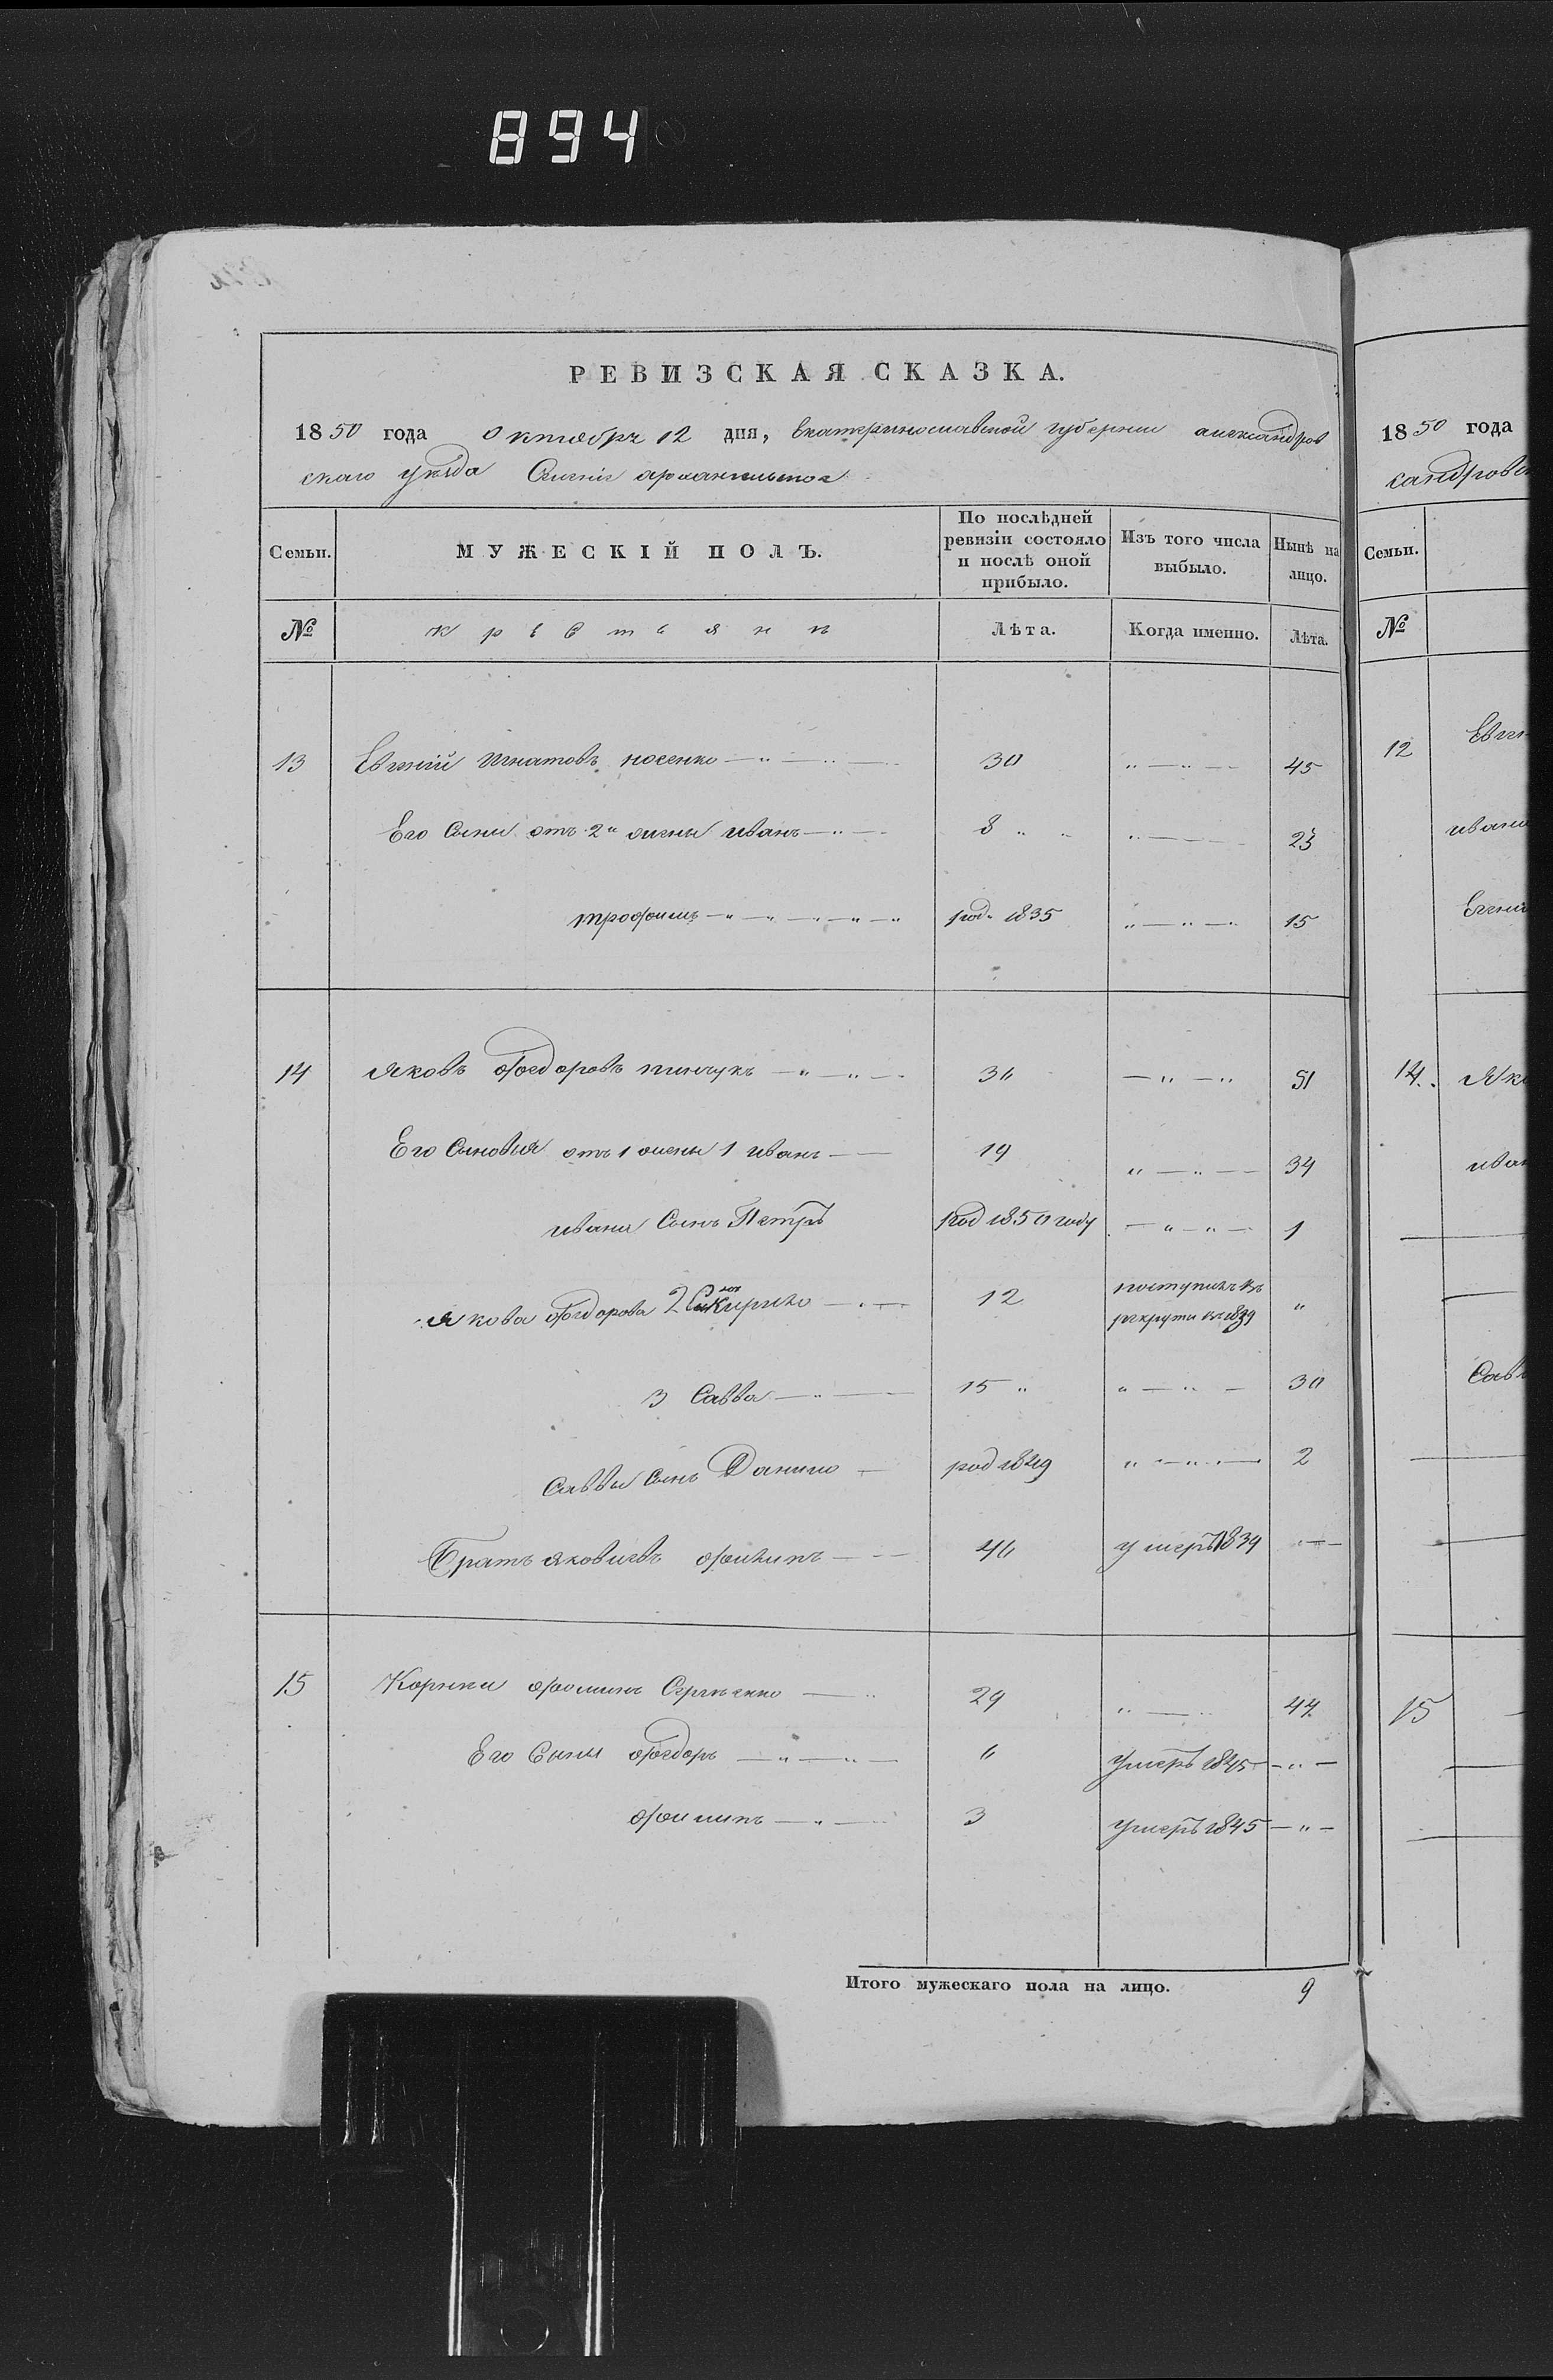 894
РЕВИЗСКАЯ СКАЗКА.
1850 года октября 12 дня, Екатеринославской губернии александров
скаго уезда Селенія архангельское
Семьи. МУЖЕСКІЙ ПОЛЪ. По послѣдней ревизіи состояло и послѣ оной прибыло. Изъ того числа выбыло. Нынѣ на лицо.
№ крестьянъ Лѣта. Когда именно. Лѣта.
13 Евгній Игнатовъ носенко 30 45
Его Сыны отъ 2й жены иванъ 8 23
трофимъ род. 1835 15
14 Яковъ Федоровъ пинчукъ 36 51
Его Сыновья отъ 1 жены 1 иванъ 19 34
ивана Сынъ Петръ род 1850 году 1
Якова Федорова 2 12 поступилъ въ рекруты въ 1839
3 Савва 15 30
Саввы Сынъ Данило род 1849 2
Братъ яковлевъ филипъ 46 умеръ 1839
15 Корней фоминъ Сергіенко 29 44
Его Сыны Федоръ 6 умеръ 1845
филипъ 3 умеръ 1845
Итого мужескаго пола на лицо. 9
1850 года
сандровс
Семьи.
№
12 Евгн
ивана
Евгній
14. Яко
иван
Савв
15